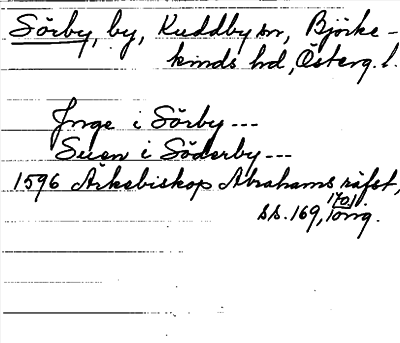 Sörby, by, Kuddby sn, Björke-
kinds hd, Österg. l.
Inge i Sörby ---
Suen i Söderby ---
1596 Ärkebiskop Abrahams räfst,
ss. 169, 170
orig.